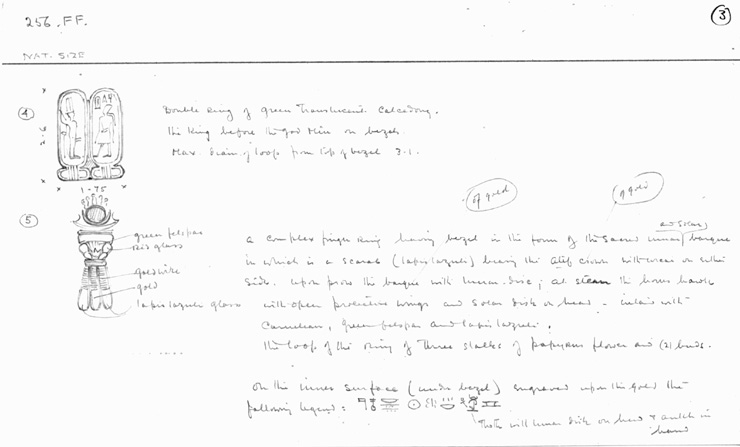 256.FF.
③
NAT. SIZE
④
Double Ring of green Translucent Calcedony.
The King before the god Min on bezel.
Max. diam. of loop from top of bezel 3-1.
2.6
1-75
⑤
of gold
of gold
green felspar
Red glass
gold wire
gold
lapis lazuli glass
and Solar
a complex finger ring having bezel in the form of the Sacred lunar barque
in which is a scarab (lapis lazuli) bearing the Atef crown with uraei on either
side. Upon prow the barque with lunar disc; at steam the horus hawk
with open protective wings and Solar disk on head - inlaid with
Carnelian, green felspar and lapis lazuli.
The loop of the ring of three stalks of papyrus flower and (2) buds.
On the inner surface (under bezel) engraved upon the gold the
following legend:
Thoth with lunar disk on head & ankh in
hand